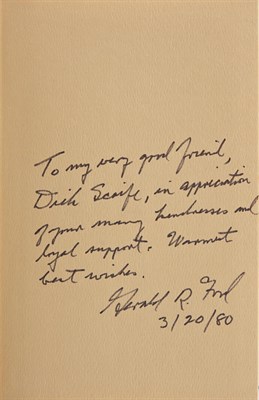 To my very good friend,
Dick Scaife, in appreciation
of your many kindnesses and
loyal support. Warmest
best wishes.
Gerald R. Ford
3/20/80